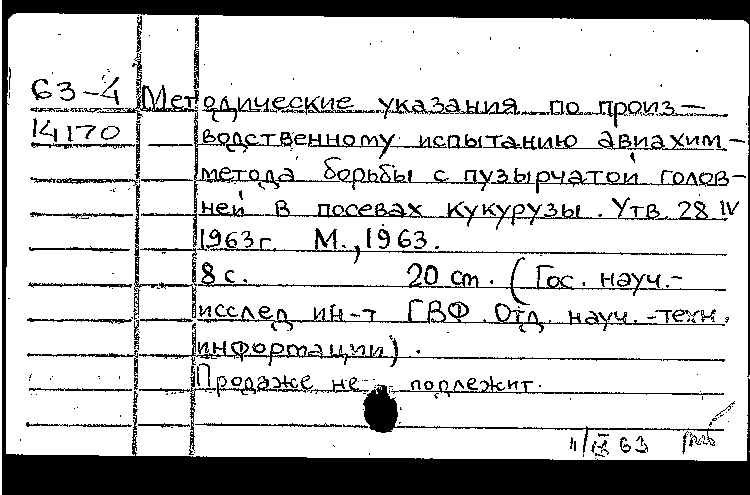 63-4 Методические указания по произ-
14170 водственному испытанию авиахим-
метода борьбы с пузырчатой голов-
ней в посевах кукурузы. Утв. 28 IV
1963г. М., 1963.
8 с. 20 cm. (Гос. науч.-
исслед ин-т ГВФ. Отд. науч.-техн.
информации).
Продаже не подлежит.
11/IX 63